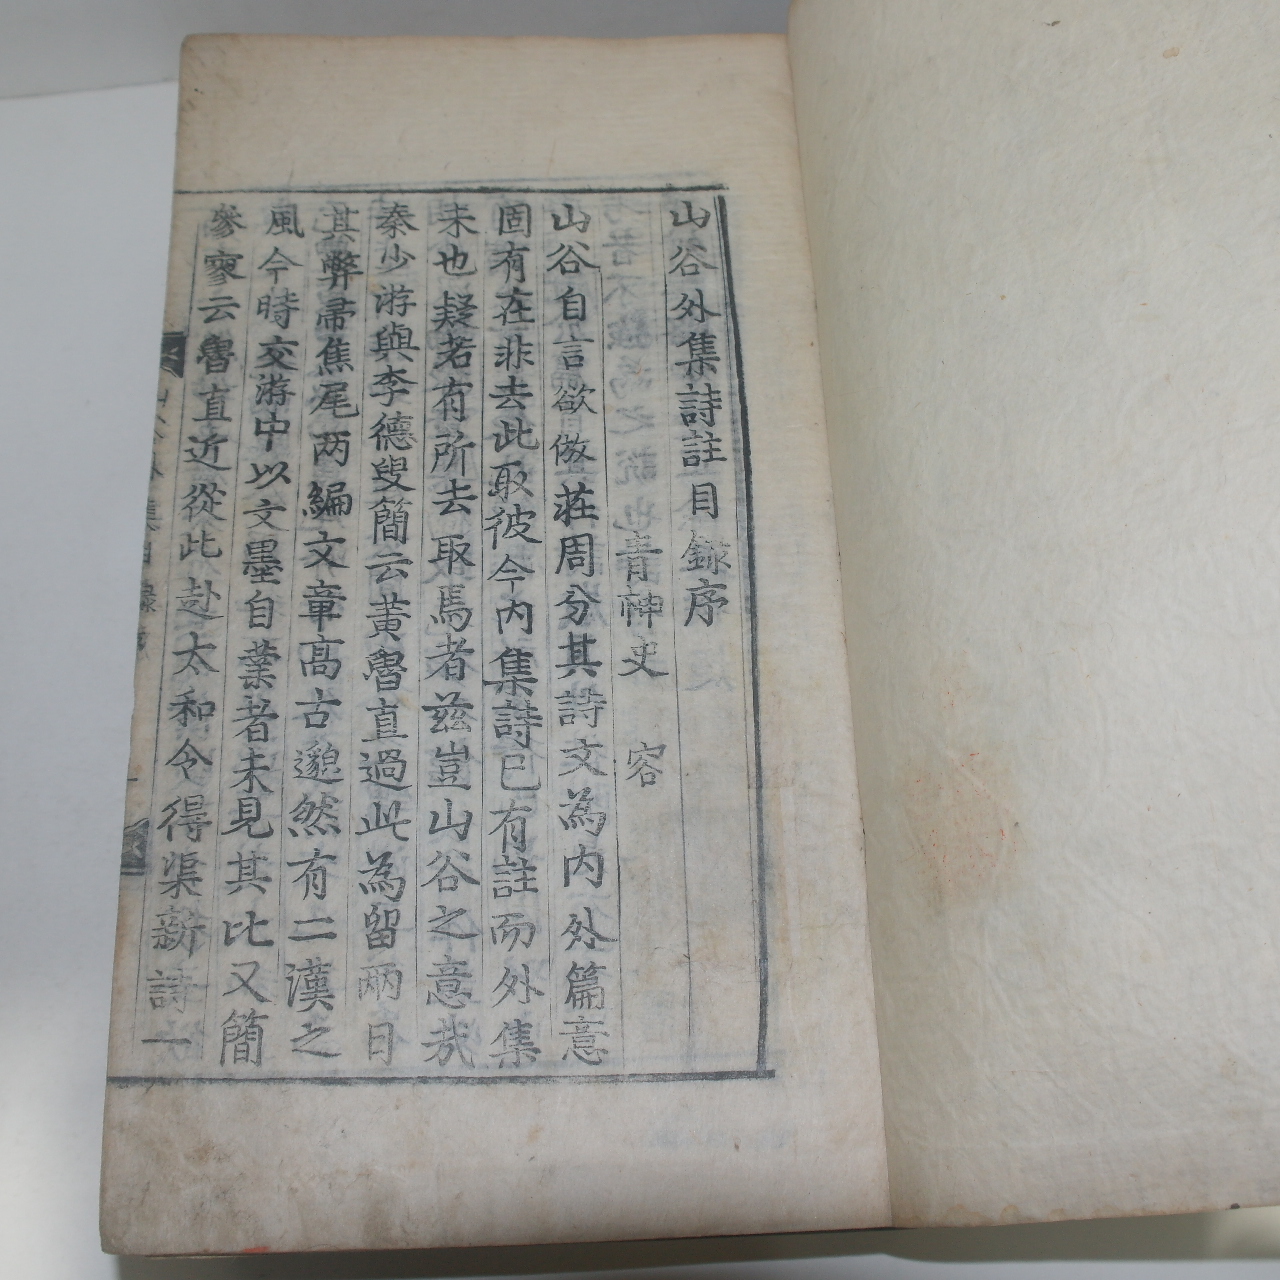 山谷外集詩註目錄序
青神史 容
山谷自言欲倣莊周分其詩文為內外篇意
固有在非去此取彼今內集詩已有註而外集
未也疑若有所去取焉者玆豈山谷之意哉
秦少游與李德叟簡云黃魯直過此為留兩日
其弊帚焦尾兩編文章高古邈然有二漢之
風今時交游中以文墨自業者未見其比又簡
參寥云魯直近從此赴太和令得渠新詩一